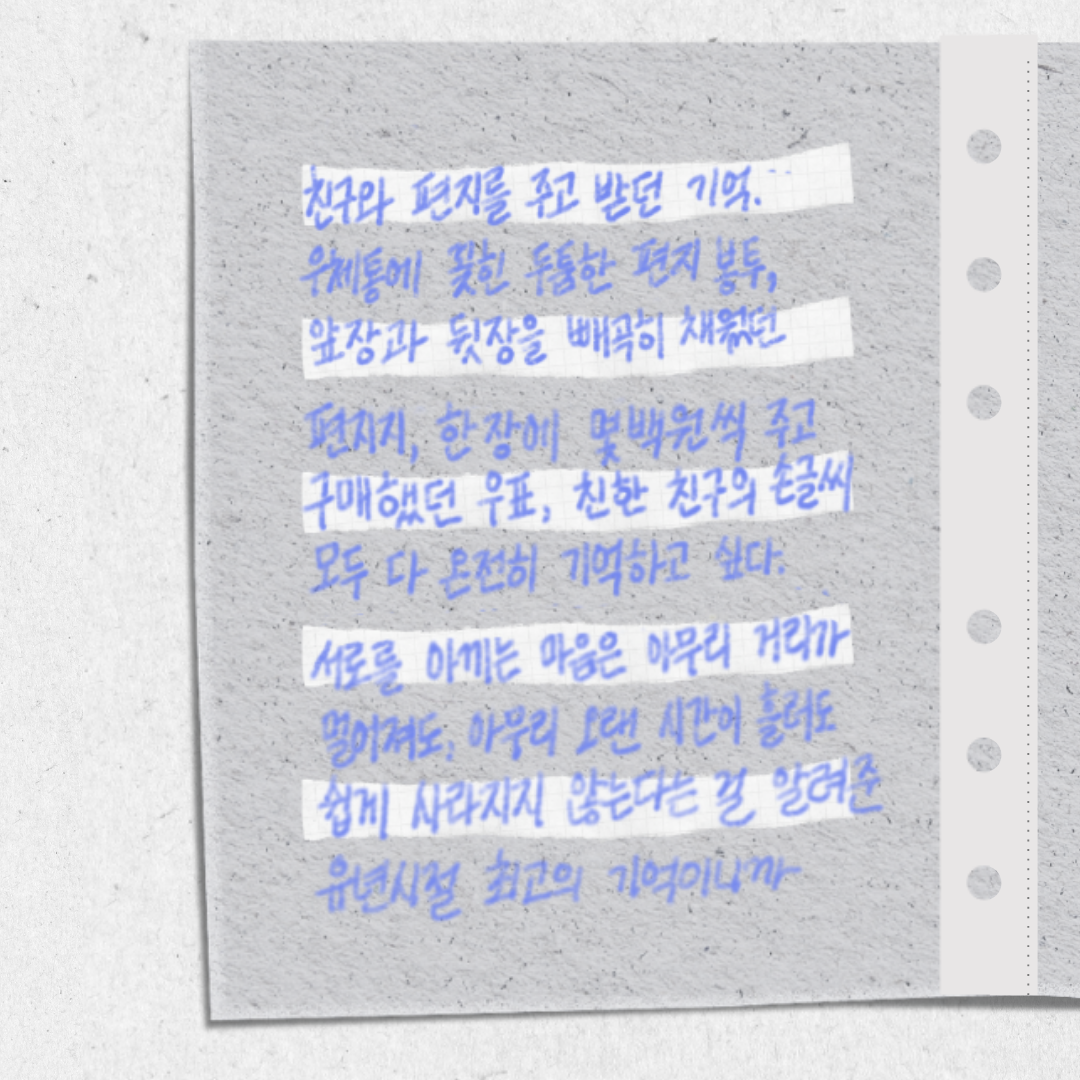 친구와 편지를 주고 받던 기억...
우체통에 꽂힌 두툼한 편지 봉투,
앞장과 뒷장을 빼곡히 채웠던
편지지, 한 장에 몇백원씩 주고
구매했던 우표, 친한 친구의 손글씨
모두 다 온전히 기억하고 싶다.
서로를 아끼는 마음은 아무리 거리가
멀어져도, 아무리 오랜 시간이 흘러도
쉽게 사라지지 않는다는 걸 알려준
유년시절 최고의 기억이니까